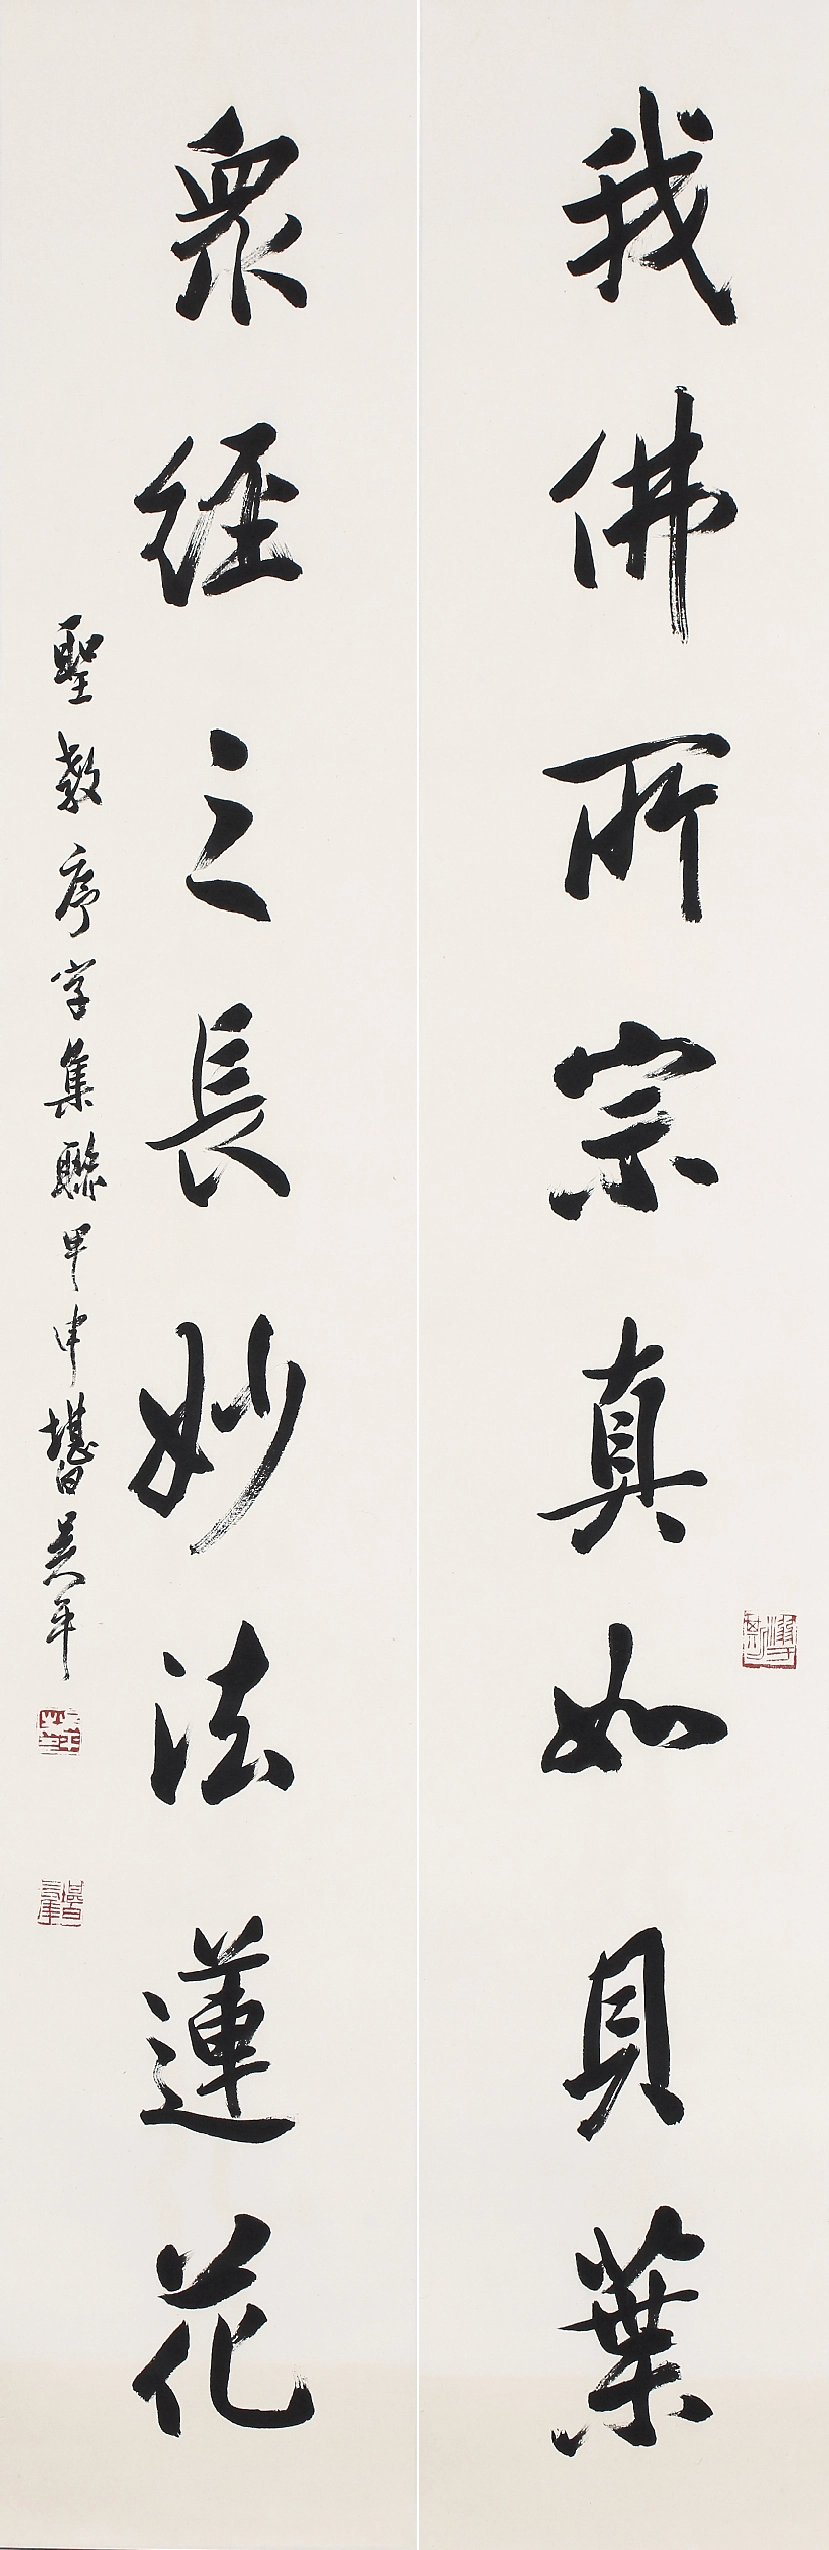 我佛所宗真如貝葉
眾經之長妙法蓮花
聖教序字集聯甲申堪白吳平